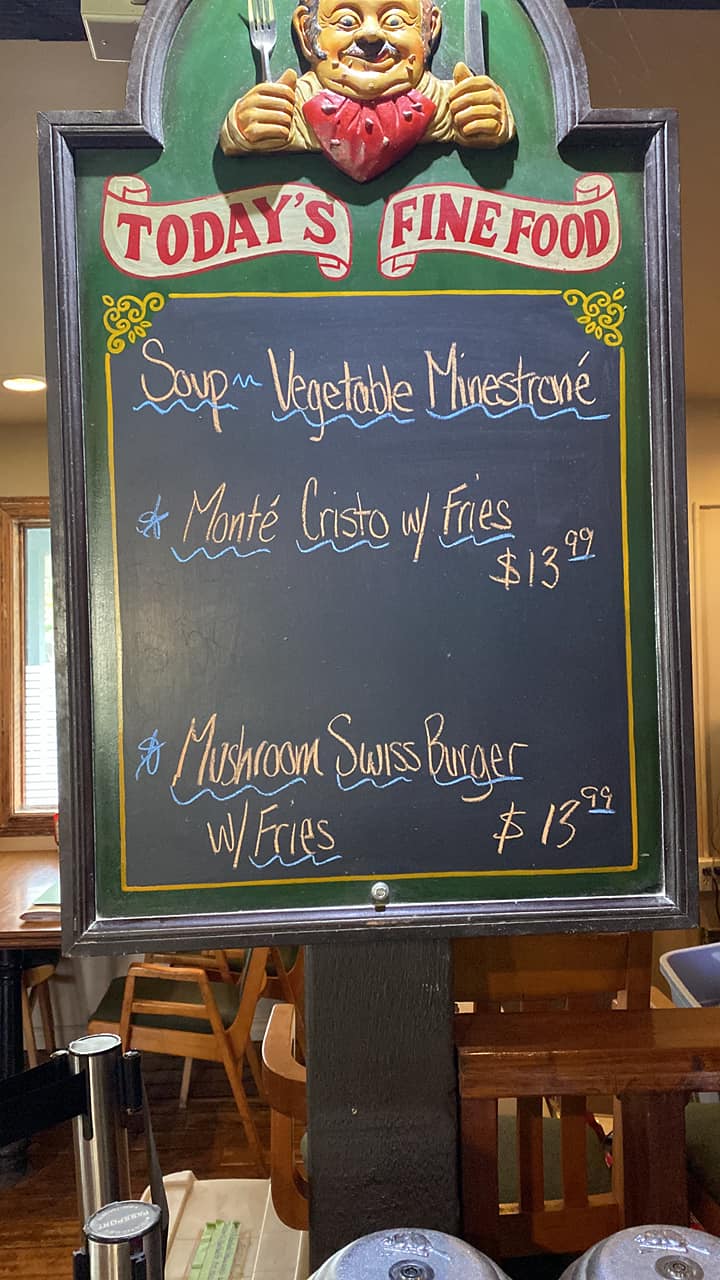 TODAY'S FINE FOOD
Soup ~ Vegetable Minestroné
Monté Cristo w/ Fries
$13.99
Mushroom Swiss Burger
w/ Fries $13.99
PASSPORT